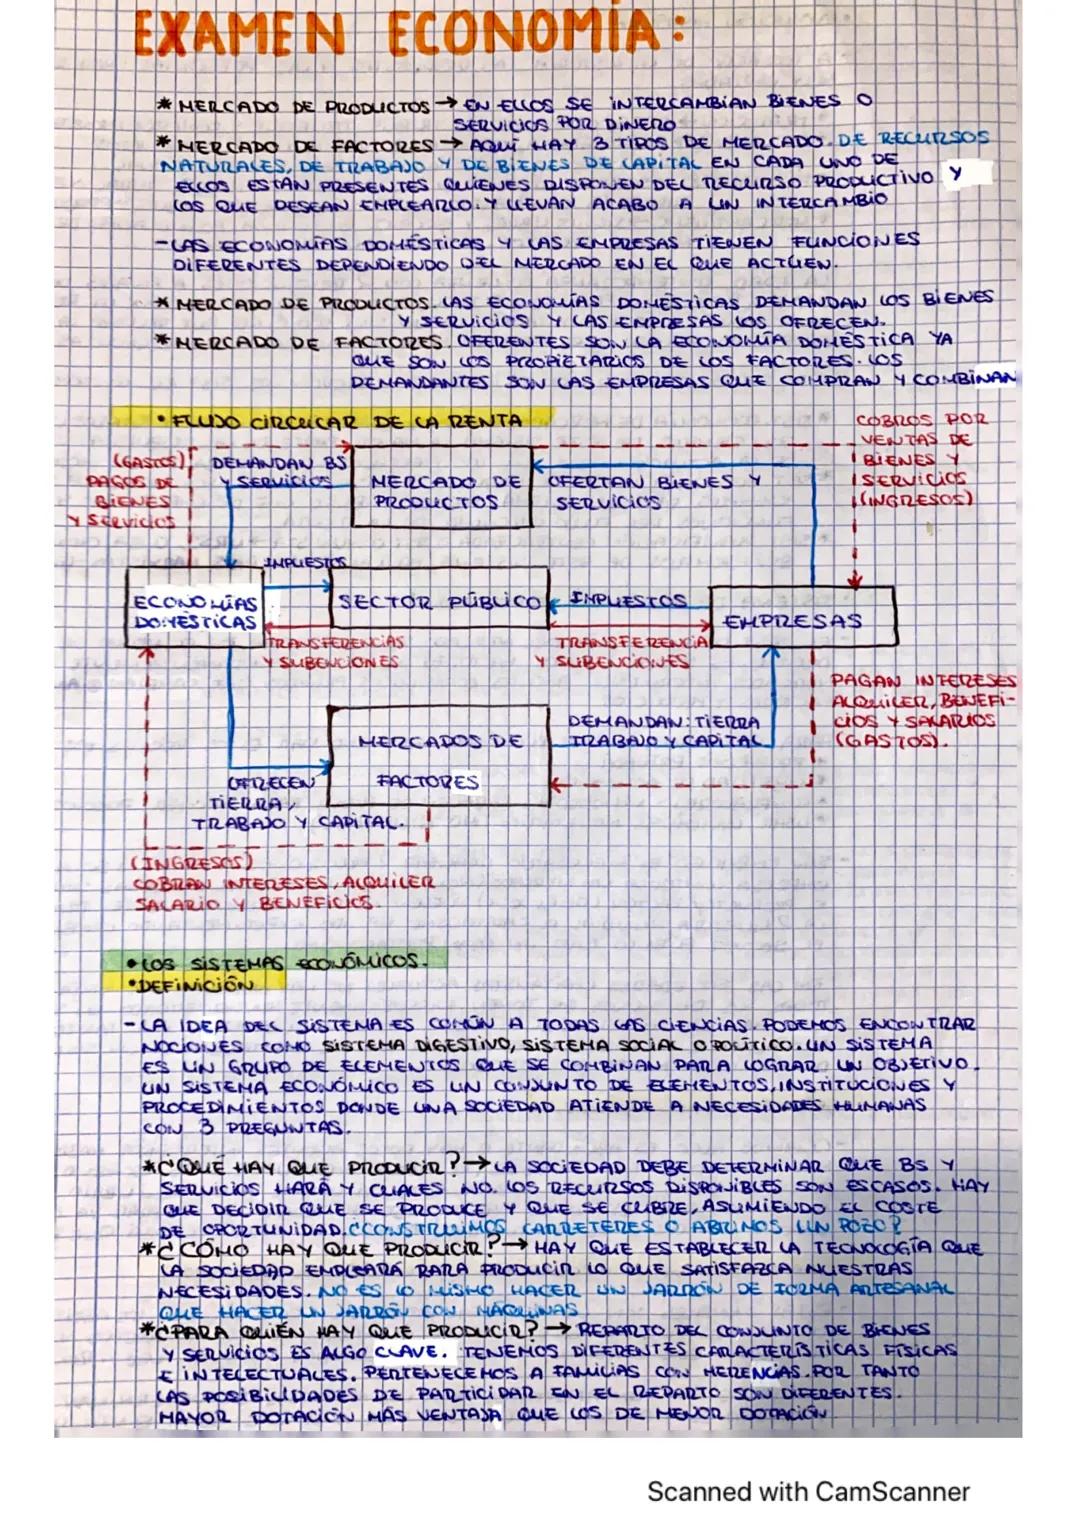 EXAMEN ECONOMÍA:
* MERCADO DE PRODUCTOS → EN ELLOS SE INTERCAMBIAN BIENES O
SERVICIOS POR DINERO
* MERCADO DE FACTORES → AQUÍ HAY 3 TIPOS DE MERCADO. DE RECURSOS
NATURALES, DE TRABAJO Y DE BIENES DE CAPITAL EN CADA UNO DE
ELLOS ESTÁN PRESENTES QUIENES DISPONEN DEL RECURSO PRODUCTIVO Y
LOS QUE DESEAN EMPLEARLO. Y LLEVAN ACABO A UN INTERCAMBIO
- LAS ECONOMÍAS DOMÉSTICAS Y LAS EMPRESAS TIENEN FUNCIONES
DIFERENTES DEPENDIENDO DEL MERCADO EN EL QUE ACTÚEN.
* MERCADO DE PRODUCTOS. LAS ECONOMÍAS DOMÉSTICAS DEMANDAN LOS BIENES
Y SERVICIOS Y LAS EMPRESAS LOS OFRECEN.
* MERCADO DE FACTORES. OFERENTES SON LA ECONOMÍA DOMÉSTICA YA
QUE SON LOS PROPIETARIOS DE LOS FACTORES. LOS
DEMANDANTES SON LAS EMPRESAS QUE COMPRAN Y COMBINAN
• FLUJO CIRCULAR DE LA RENTA
(GASTOS)
PAGOS DE
BIENES
Y SERVICIOS
DEMANDAN BS
Y SERVICIOS
MERCADO DE
PRODUCTOS
OFERTAN BIENES Y
SERVICIOS
COBROS POR
VENTAS DE
BIENES Y
SERVICIOS
(INGRESOS)
IMPUESTOS
ECONOMÍAS
DOMÉSTICAS
SECTOR PÚBLICO
IMPUESTOS
EMPRESAS
TRANSFERENCIAS
Y SUBENCIONES
TRANSFERENCIA
Y SUBENCIONES
PAGAN INTERESES
ALQUILER, BENEFI-
CIOS Y SALARIOS
(GASTOS).
MERCADOS DE
FACTORES
DEMANDAN: TIERRA
TRABAJO Y CAPITAL
OFRECEN
TIERRA,
TRABAJO Y CAPITAL.
(INGRESOS)
COBRAN INTERESES, ALQUILER
SALARIO Y BENEFICIOS.
• LOS SISTEMAS ECONÓMICOS.
• DEFINICIÓN
- LA IDEA DEL SISTEMA ES COMÚN A TODAS LAS CIENCIAS. PODEMOS ENCONTRAR
NOCIONES COMO SISTEMA DIGESTIVO, SISTEMA SOCIAL O POLÍTICO. UN SISTEMA
ES UN GRUPO DE ELEMENTOS QUE SE COMBINAN PARA LOGRAR UN OBJETIVO.
UN SISTEMA ECONÓMICO ES UN CONJUNTO DE ELEMENTOS, INSTITUCIONES Y
PROCEDIMIENTOS DONDE UNA SOCIEDAD ATIENDE A NECESIDADES HUMANAS
CON 3 PREGUNTAS.
* ¿QUÉ HAY QUE PRODUCIR? → LA SOCIEDAD DEBE DETERMINAR QUE BS Y
SERVICIOS HARÁ Y CUALES NO. LOS RECURSOS DISPONIBLES SON ESCASOS. HAY
QUE DECIDIR QUE SE PRODUCE Y QUE SE CUBRE, ASUMIENDO EL COSTE
DE OPORTUNIDAD. ¿CONSTRUIMOS CARRETERES O ABRIMOS UN POZO?
* ¿CÓMO HAY QUE PRODUCIR? → HAY QUE ESTABLECER LA TECNOLOGÍA QUE
LA SOCIEDAD EMPLEARÁ PARA PRODUCIR LO QUE SATISFAZCA NUESTRAS
NECESIDADES. NO ES LO MISMO HACER UN JARRÓN DE FORMA ARTESANAL
QUE HACER UN JARRÓN CON MÁQUINAS
* ¿PARA QUIÉN HAY QUE PRODUCIR? → REPARTO DEL CONJUNTO DE BIENES
Y SERVICIOS ES ALGO CLAVE. TENEMOS DIFERENTES CARACTERÍSTICAS FÍSICAS
E INTELECTUALES. PERTENECEMOS A FAMILIAS CON HERENCIAS. POR TANTO
LAS POSIBILIDADES DE PARTICIPAR EN EL REPARTO SON DIFERENTES.
MAYOR DOTACIÓN MÁS VENTAJA QUE LOS DE MENOR DOTACIÓN
Scanned with CamScanner